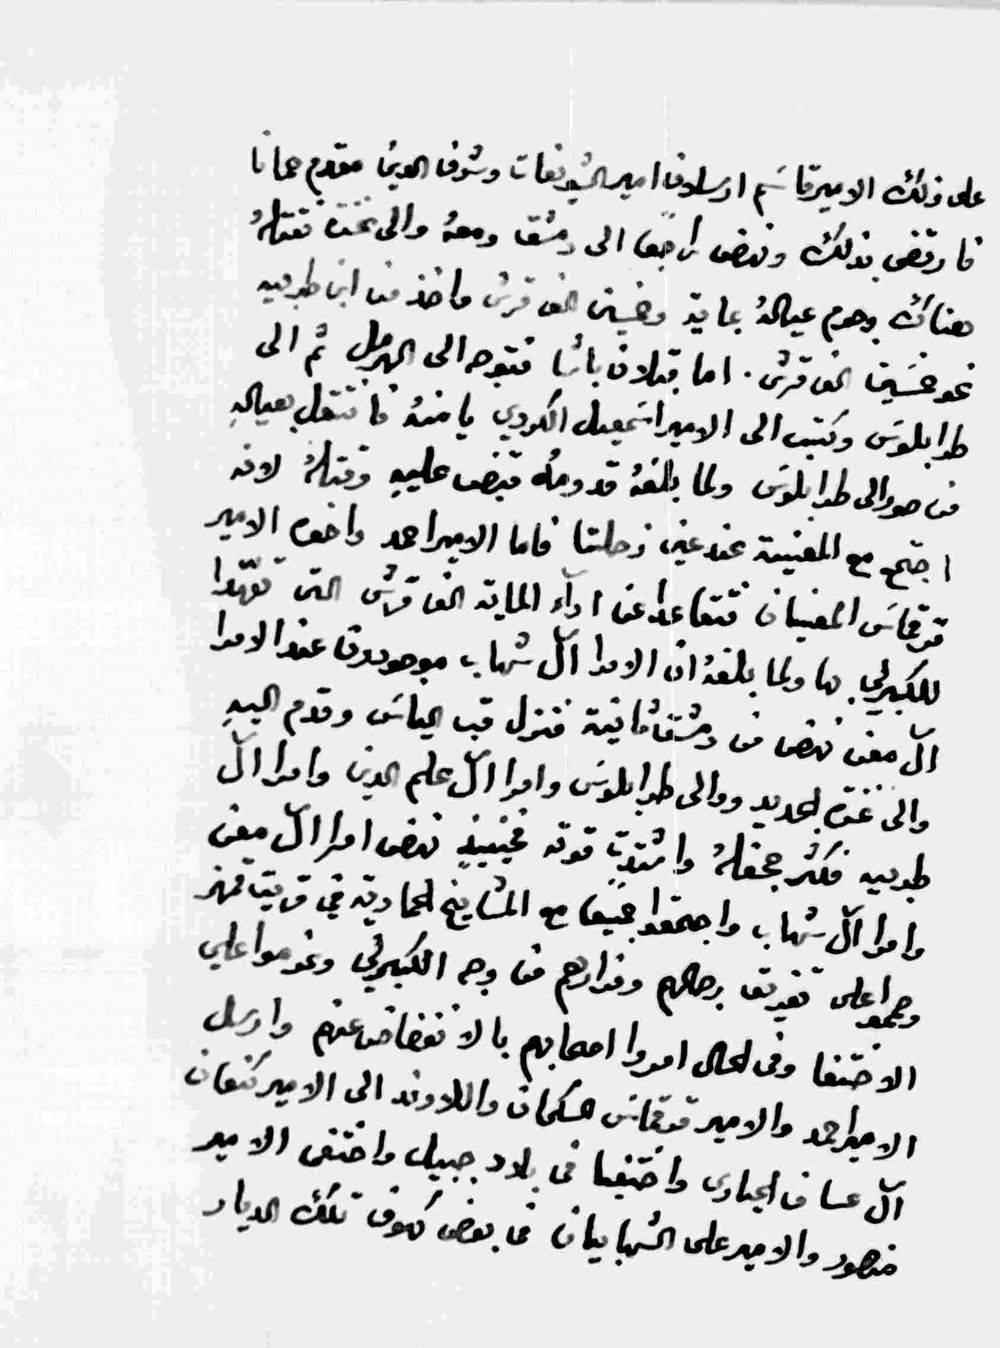 على ذلك الامير قاسم ارسلان امير الشويفات وشرف الدين مقدم حمانا
فارتضى بذلك ونهض راجعا الى دمشق ومعه والى غزة فقتلهُ
هناك وجرم عياله بماية وخمسين الف قرش واخذ من ابن طربيه
نحو خمسين الف قرش. اما قبلان باشا فتوجه الى الهرمل ثم الى
طرابلوس وكتب الى الامير اسمعيل الكردي يامنهُ فانتقل بعيالهِ
من صور الى طرابلوس ولما بلغهُ قدومهُ قبض عليهِ وقتلهُ لانه
اجتمع مع المعنيية عند عين زحلتا فاما الامير احمد واخوه الامير
قرقماس المعنيان فتقاعدا عن ادآء الماية الف قرش التى تعهدا
للكبرلي بها ولما بلغهُ ان الامرا آل شهاب موجودون عند الامرا
آل معن نهض من دمشق ثانية فنزل قب الياس وقدم اليهِ
والى غزة الجديد ووالى طرابلوس وامرا آل علم الدين وامرا آل
طربيه فكثر جحفلهُ واشتدت قوته فحينيذٍ نهض امرا آل معن
وامرا آل شهاب واجتمعوا جميعًا مع المشايخ الحمادية في قرية قمهز
وصمموا على تفريق رجالهم وفرارهم من وجه الكبرلي وعزموا على
الاختفا وفى الحال امروا اصحابهم بالانفضاض عنهم وارسل
الامير احمد والامير قرقماس السكمان واللاوند الى الامير كنعان
آل عساف الحيارى واختفيا فى بلاد جبيل واختفى الامير
منصور والامير على الشهابيان فى بعض كهوف تلك الديار